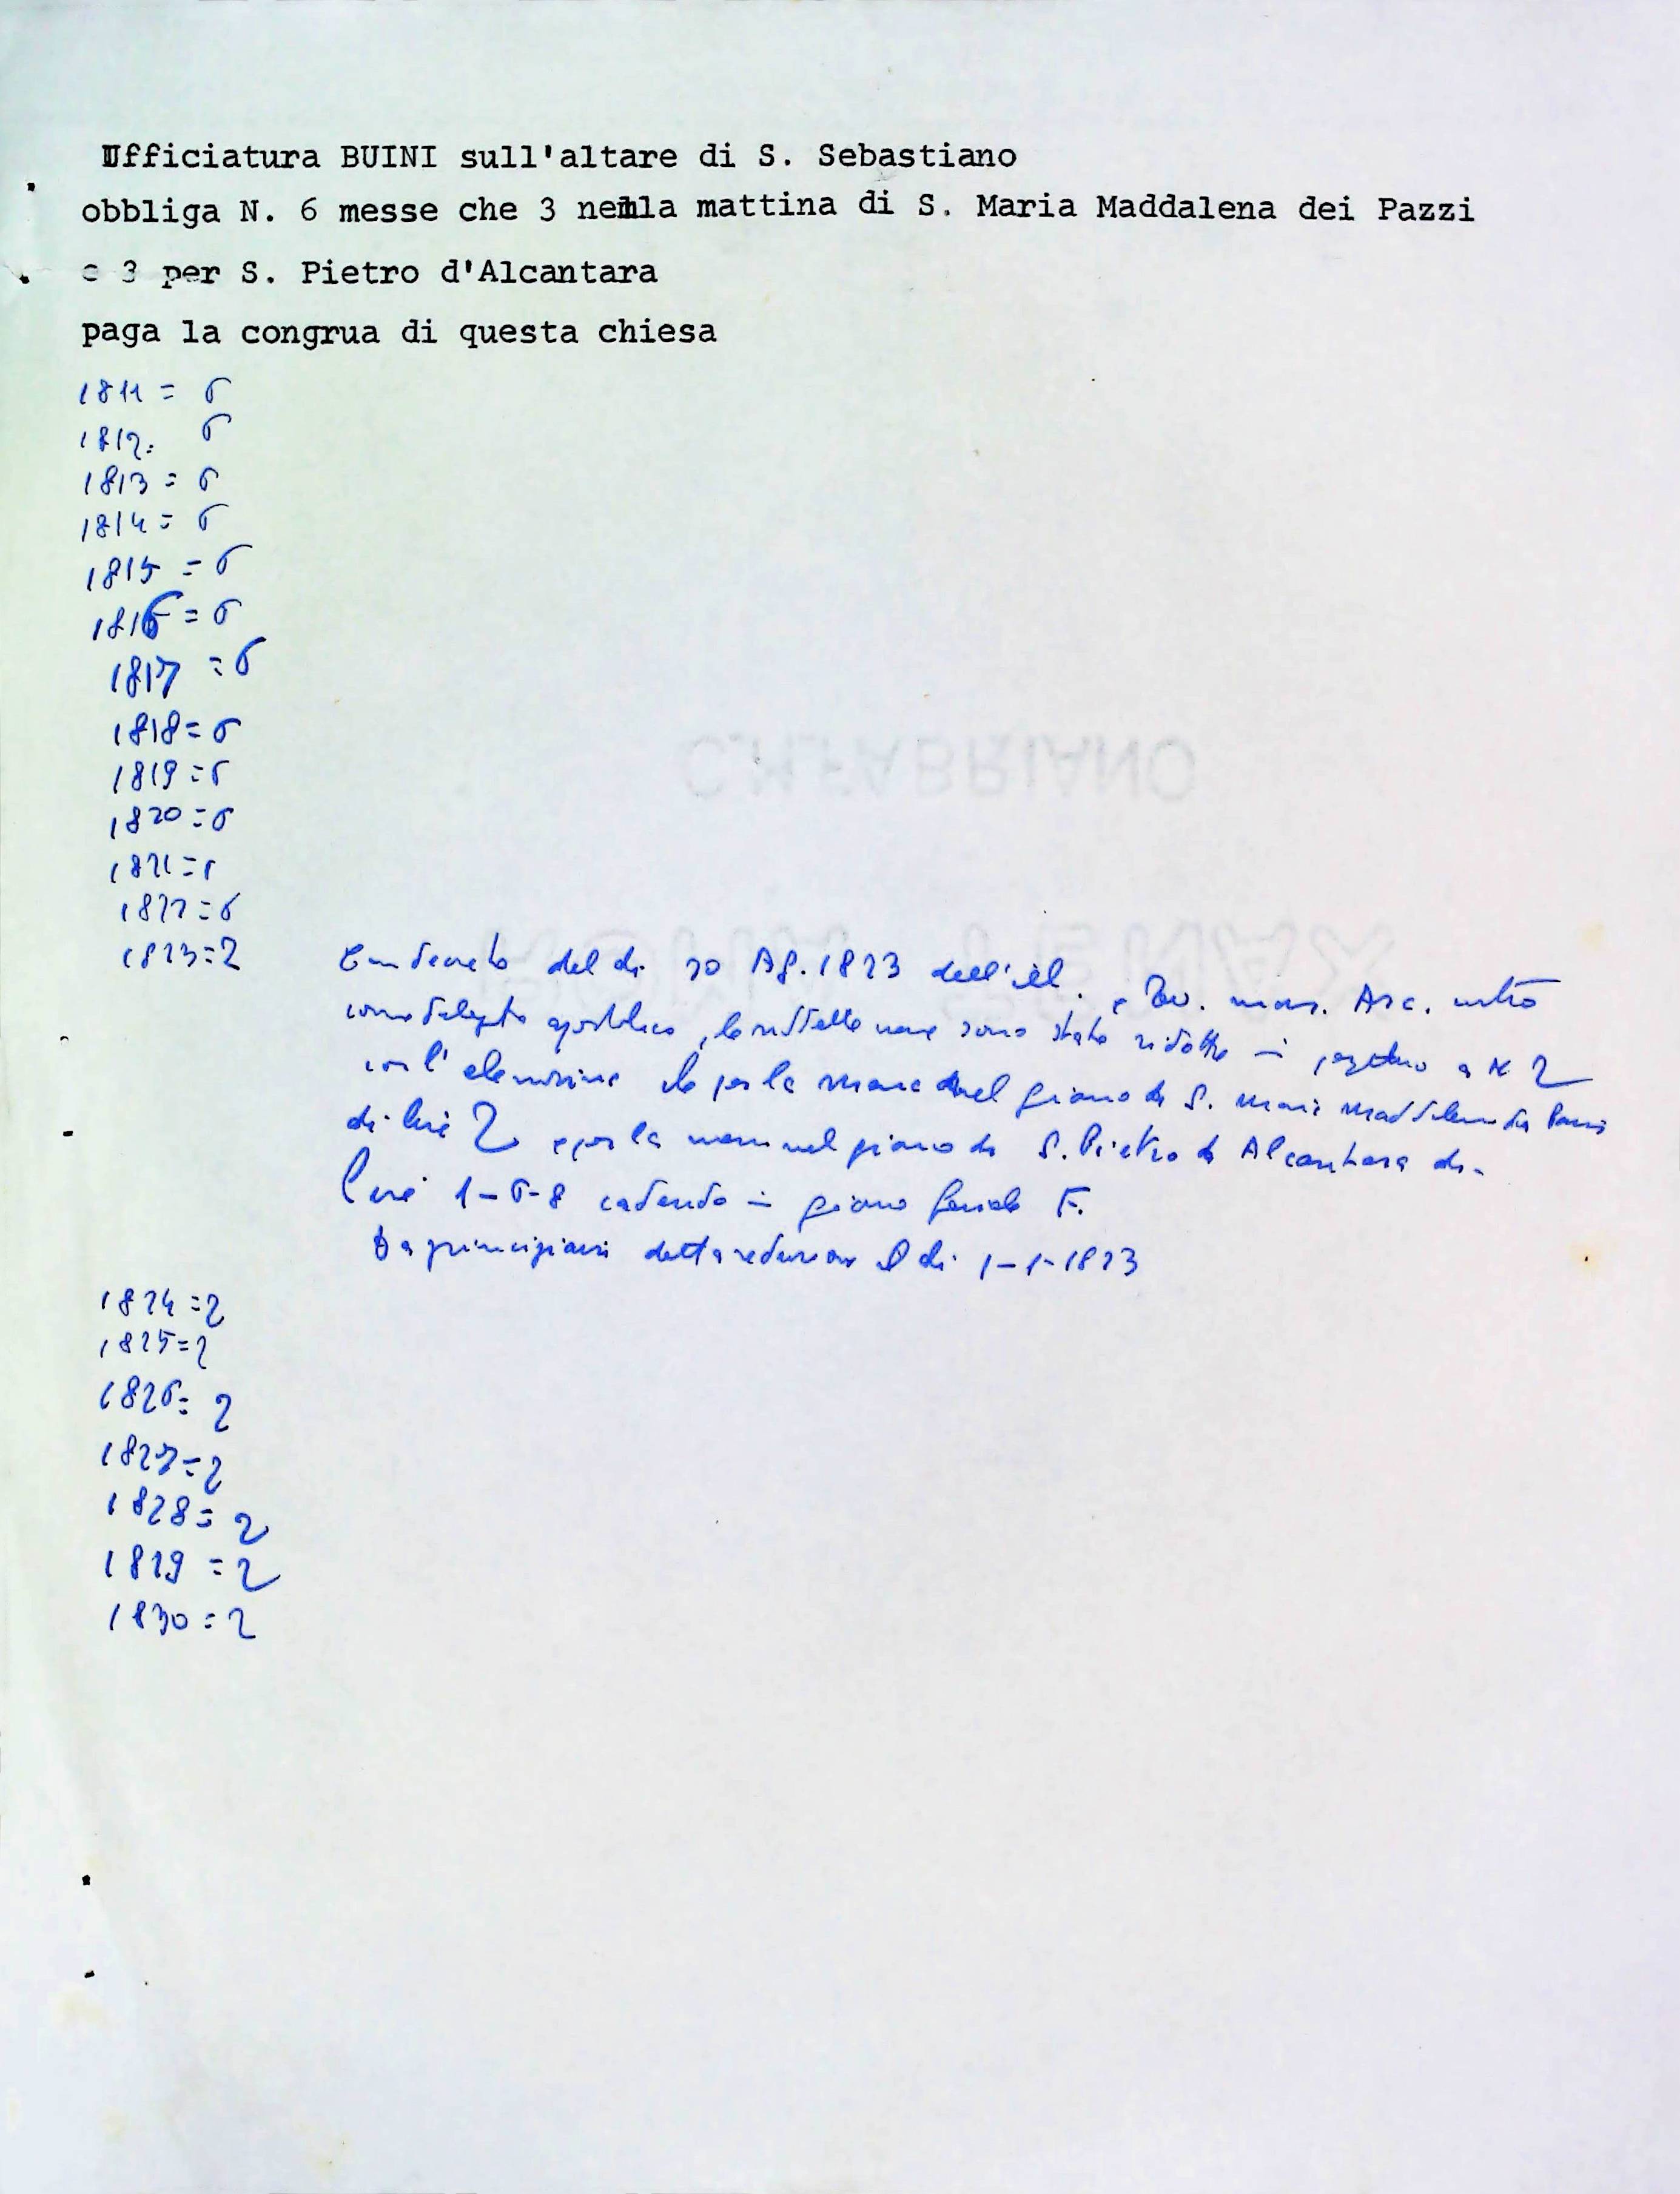 Ufficiatura BUINI sull'altare di S. Sebastiano
obbliga N. 6 messe che 3 nella mattina di S. Maria Maddalena dei Pazzi
e 3 per S. Pietro d'Alcantara
paga la congrua di questa chiesa
1811 = 6
1812: 6
1813 = 6
1814 = 6
1815 = 6
1816 = 6
1817 = 6
1818 = 6
1819 = 6
1820 = 6
1821 = 6
1822 = 6
1823 = 2
Con decreto del dì 20 Ag. 1823 dell'Ill. e Rev. mons. Arc. nostro
come delegato apostolico, le suddette messe sono state ridotte in perpetuo a N 2
con l'elemosina che per la messa nel giorno di S. Maria Maddalena dei Pazzi
di lire 2 e per la messa nel giorno di S. Pietro di Alcantara di
lire 1-6-8 cadendo in giorno feriale F.
Da principiarsi detta reduzione il dì 1-1-1823
1824 = 2
1825 = 2
1826 = 2
1827 = 2
1828 = 2
1829 = 2
1830 = 2
C.M.FABRIANO